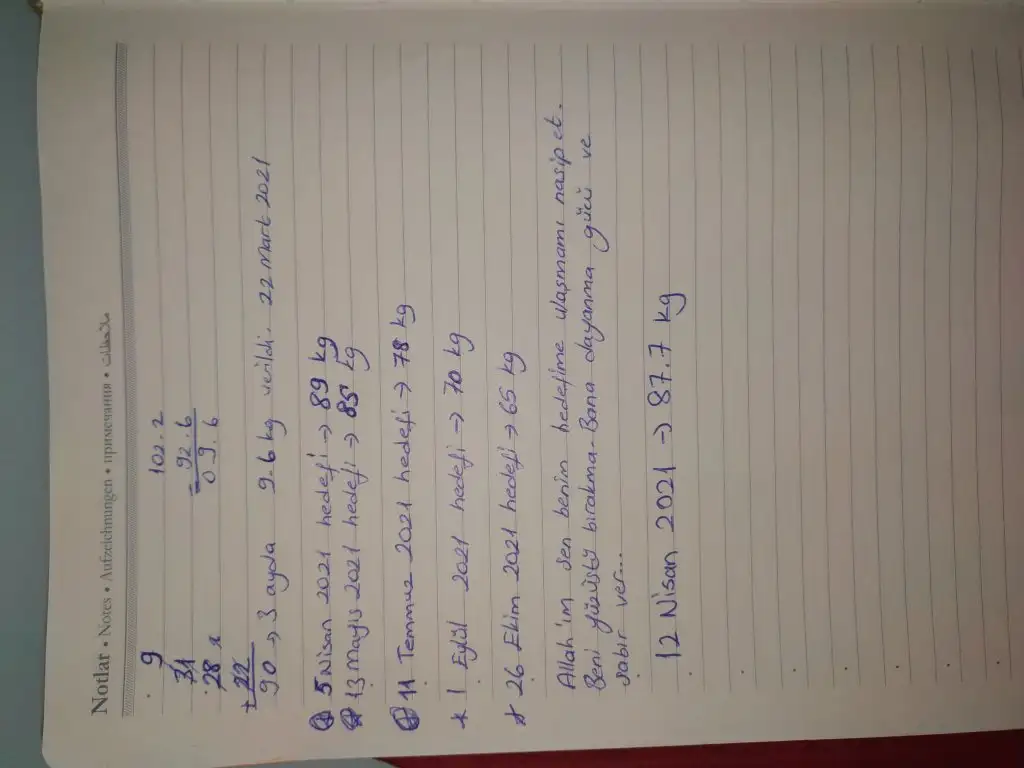 Notlar • Notes • Aufzeichnungen • примечания • ملاحظات
9 102.2
31
28 - 92.6
09.6
+ 22
90 → 3 ayda 9.6 kg verildi. 22 Mart 2021
5 Nisan 2021 hedefi → 89 kg
13 Mayıs 2021 hedefi → 85 kg
11 Temmuz 2021 hedefi → 78 kg
* 1 Eylül 2021 hedefi → 70 kg
* 26 Ekim 2021 hedefi → 65 kg
Allah'ım sen benim hedefime ulaşmamı nasip et.
Beni yüzüstü bırakma. Bana dayanma gücü ve
sabır ver...
12 Nisan 2021 → 87.7 kg